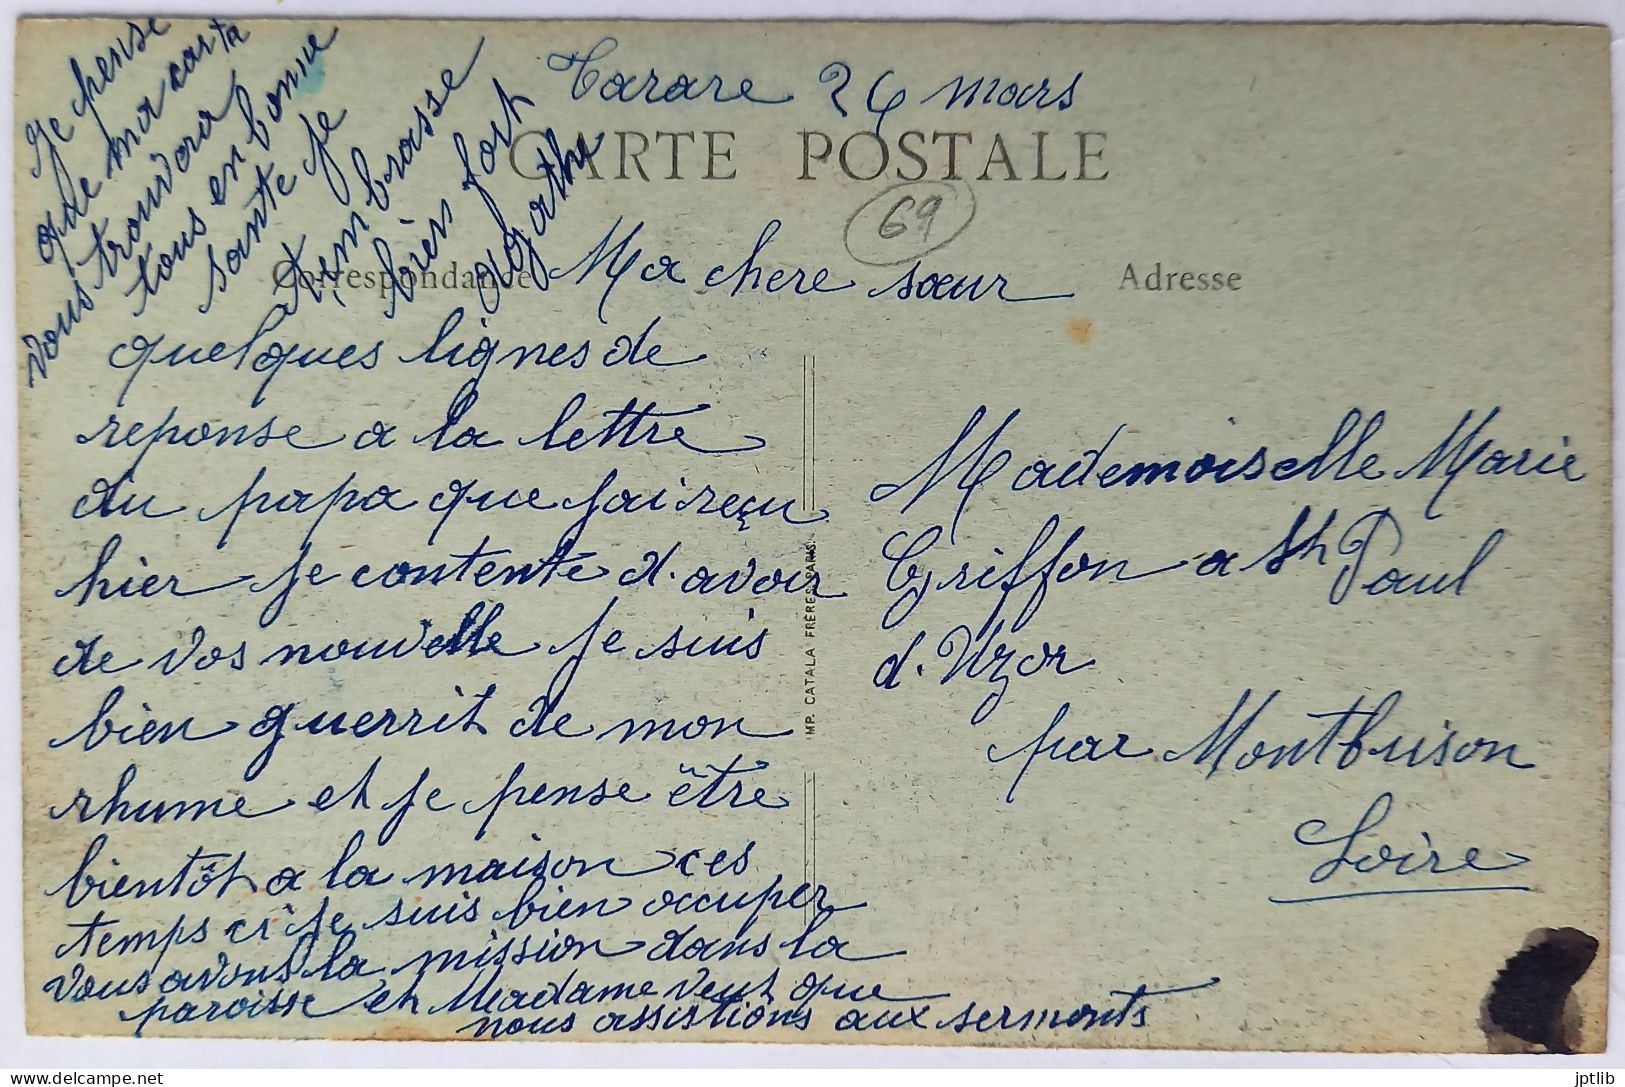 Tarare 26 mars
CARTE POSTALE
69
Correspondance
Adresse
Ma chere sœur
quelques lignes de
reponse a la lettre
du papa que jai reçu
hier je contente d'avoir
de vos nouvelle je suis
bien guerrit de mon
rhume et je pense être
bientôt a la maison ces
temps ci je suis bien occuper
vous avons la mission dans la
paroisse et Madame veut que
nous assistions aux sermonts
Je pense
que ma carta
vous trouvera
tous en bonne
sante je
t'embrasse
bien fort
agathe
Mademoiselle Marie
Griffon a St Paul
d'Uzor
par Montbrison
Loire
IMP. CATALA FRÈRES PARIS
delcampe.net
jptlib